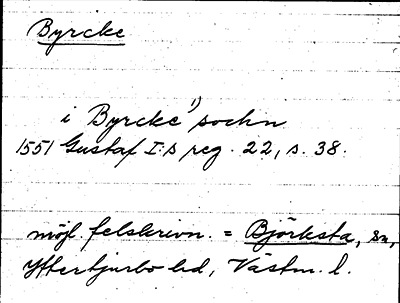 Byrcke
i Byrcke 1) sochn
1551 Gustaf I:s reg. 22, s. 38.
möjl. felskrivn. = Björksta, sn,
Yttertjurbo hd, Västm. l.